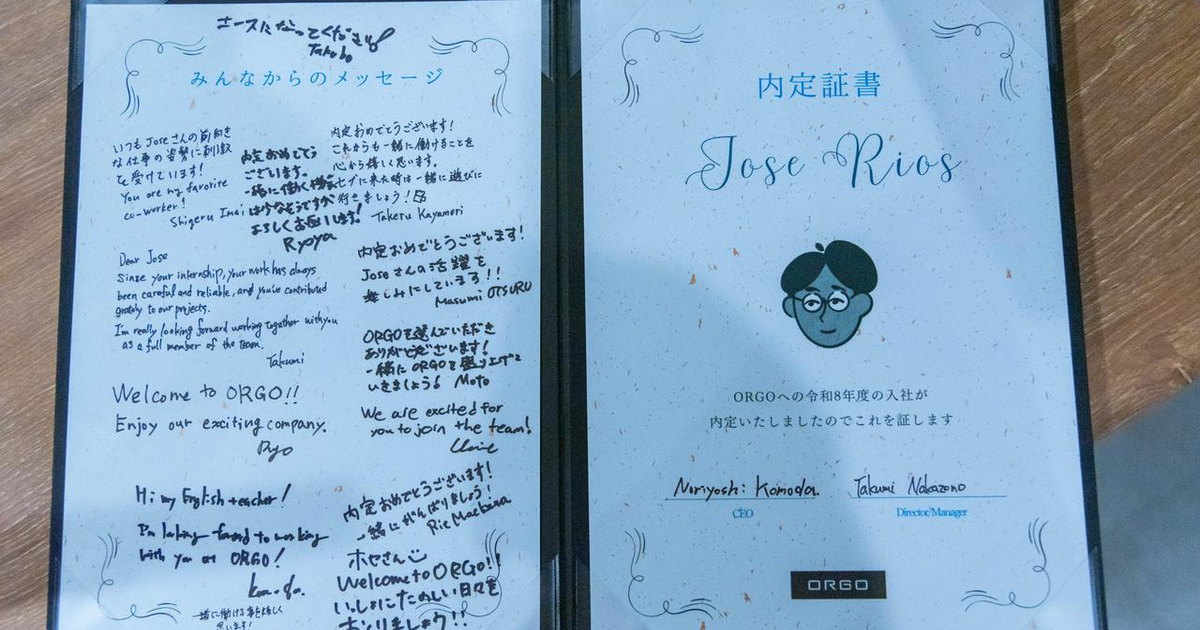 エースになってください!
みんなからのメッセージ
いつもJoseさんの前向き
な仕事の姿勢に刺激
を受けています!
You are my favorite
co-worker!
Shigeru Imai
内定おめでとう
ございます。
一緒に働く機会
は少なそうですが
よろしくお願いします!
Ryoya
内定おめでとうございます!
これからも一緒に働けることを
心から嬉しく思います。
セブに来た時は一緒に遊びに
行きましょう!
Takeru Kayamori
Dear Jose
Sinse your internship, your work has always
been careful and reliable, and you've contributed
greatly to our projects.
I'm really looking forward working together with you
as a full member of the team.
Takumi
内定おめでとうございます!
Joseさんの活躍を
楽しみにしています!!
Masumi OTSURU
ORGOを選んでいただき
ありがとうございます!
一緒にORGOを盛り上げて
いきましょう!
Moto
Welcome to ORGO!!
Enjoy our exciting company.
Ryo
We are excited for
you to join the team!
Hi my English teacher!
I'm looking forward to working
with you at ORGO!
内定おめでとうございます!
一緒にがんばりましょう!
Rie
ホセさん
Welcome to ORGO!!
いっしょにたのしい日々を
おくりましょう!!
一緒に働ける事を嬉しく
思います!
内定証書
Jose Rios
ORGOへの令和8年度の入社が
内定いたしましたのでこれを証します
Noriyoshi Komoda.
CEO
Takumi Nakazono
Director/Manager
ORGO